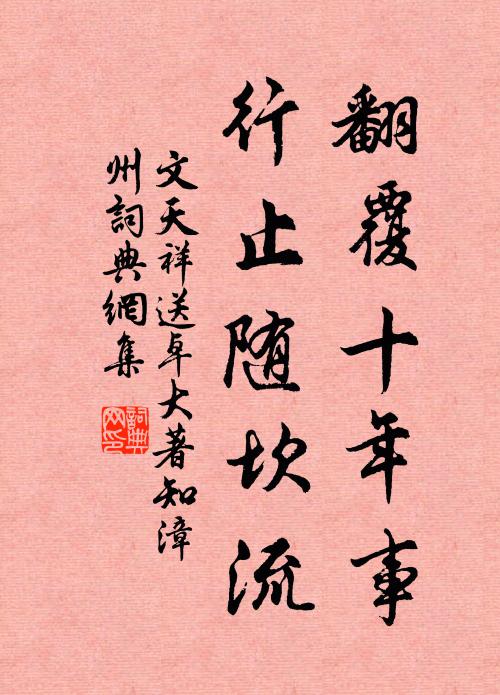 翻覆十年事
行止随坎流
文天祥送卓大著知漳
州詞典網集
詞典网印